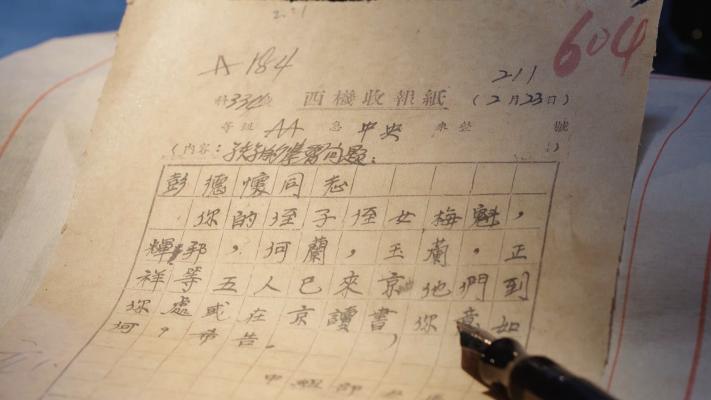 604
A 184
211
西機收報紙 (2月23日)
等級 AA 急 中央 號
(内容: 學習问题. )
彭德懷同志
你的侄子侄女梅魁，
輝邦，何蘭，玉蘭，正
祥等五人已來京他們到
你處或在京讀書，你意如
何，希告。
中組部